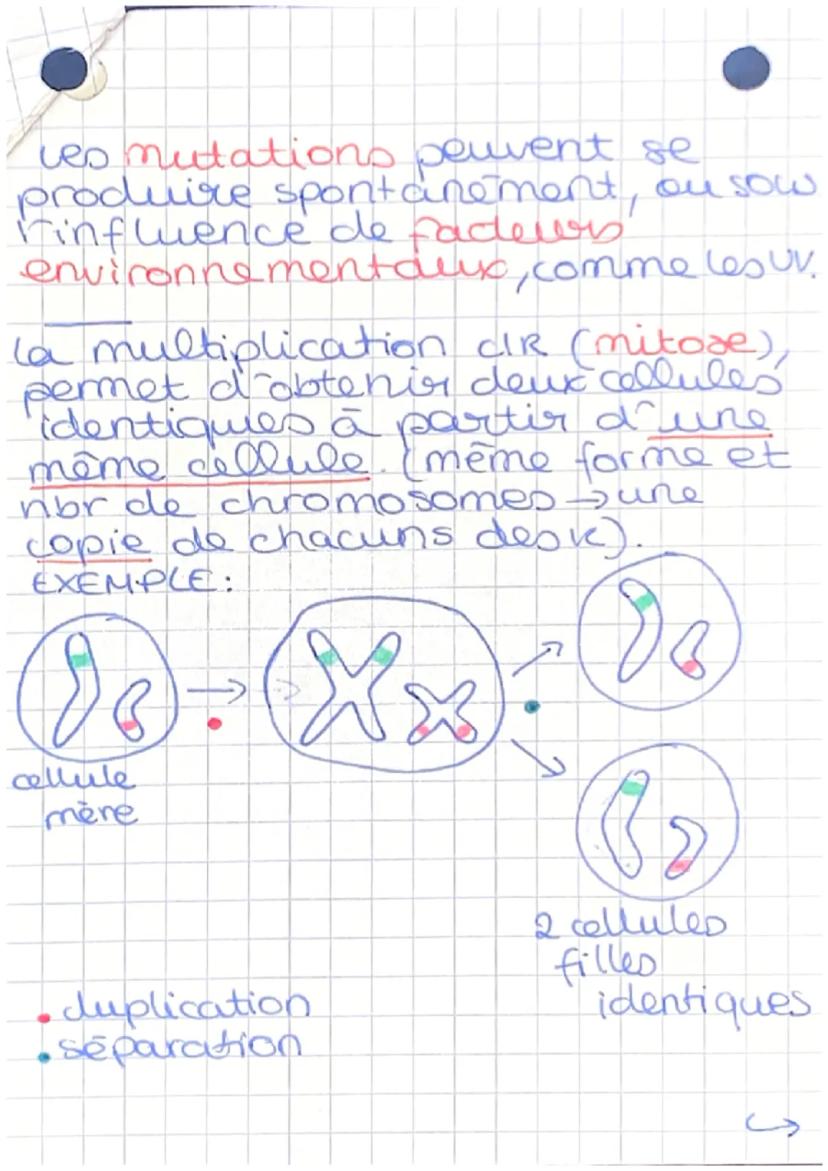 Les mutations peuvent se
produire spontanément, ou sous
l'influence de facteurs
environnementaux, comme les UV.
La multiplication clR (mitose),
permet d'obtenir deux cellules
identiques à partir d'une
même cellule. (même forme et
nbr de chromosomes → une
copie de chacuns des K).
EXEMPLE :
cellule
mère
2 cellules
filles
identiques
• duplication
• séparation